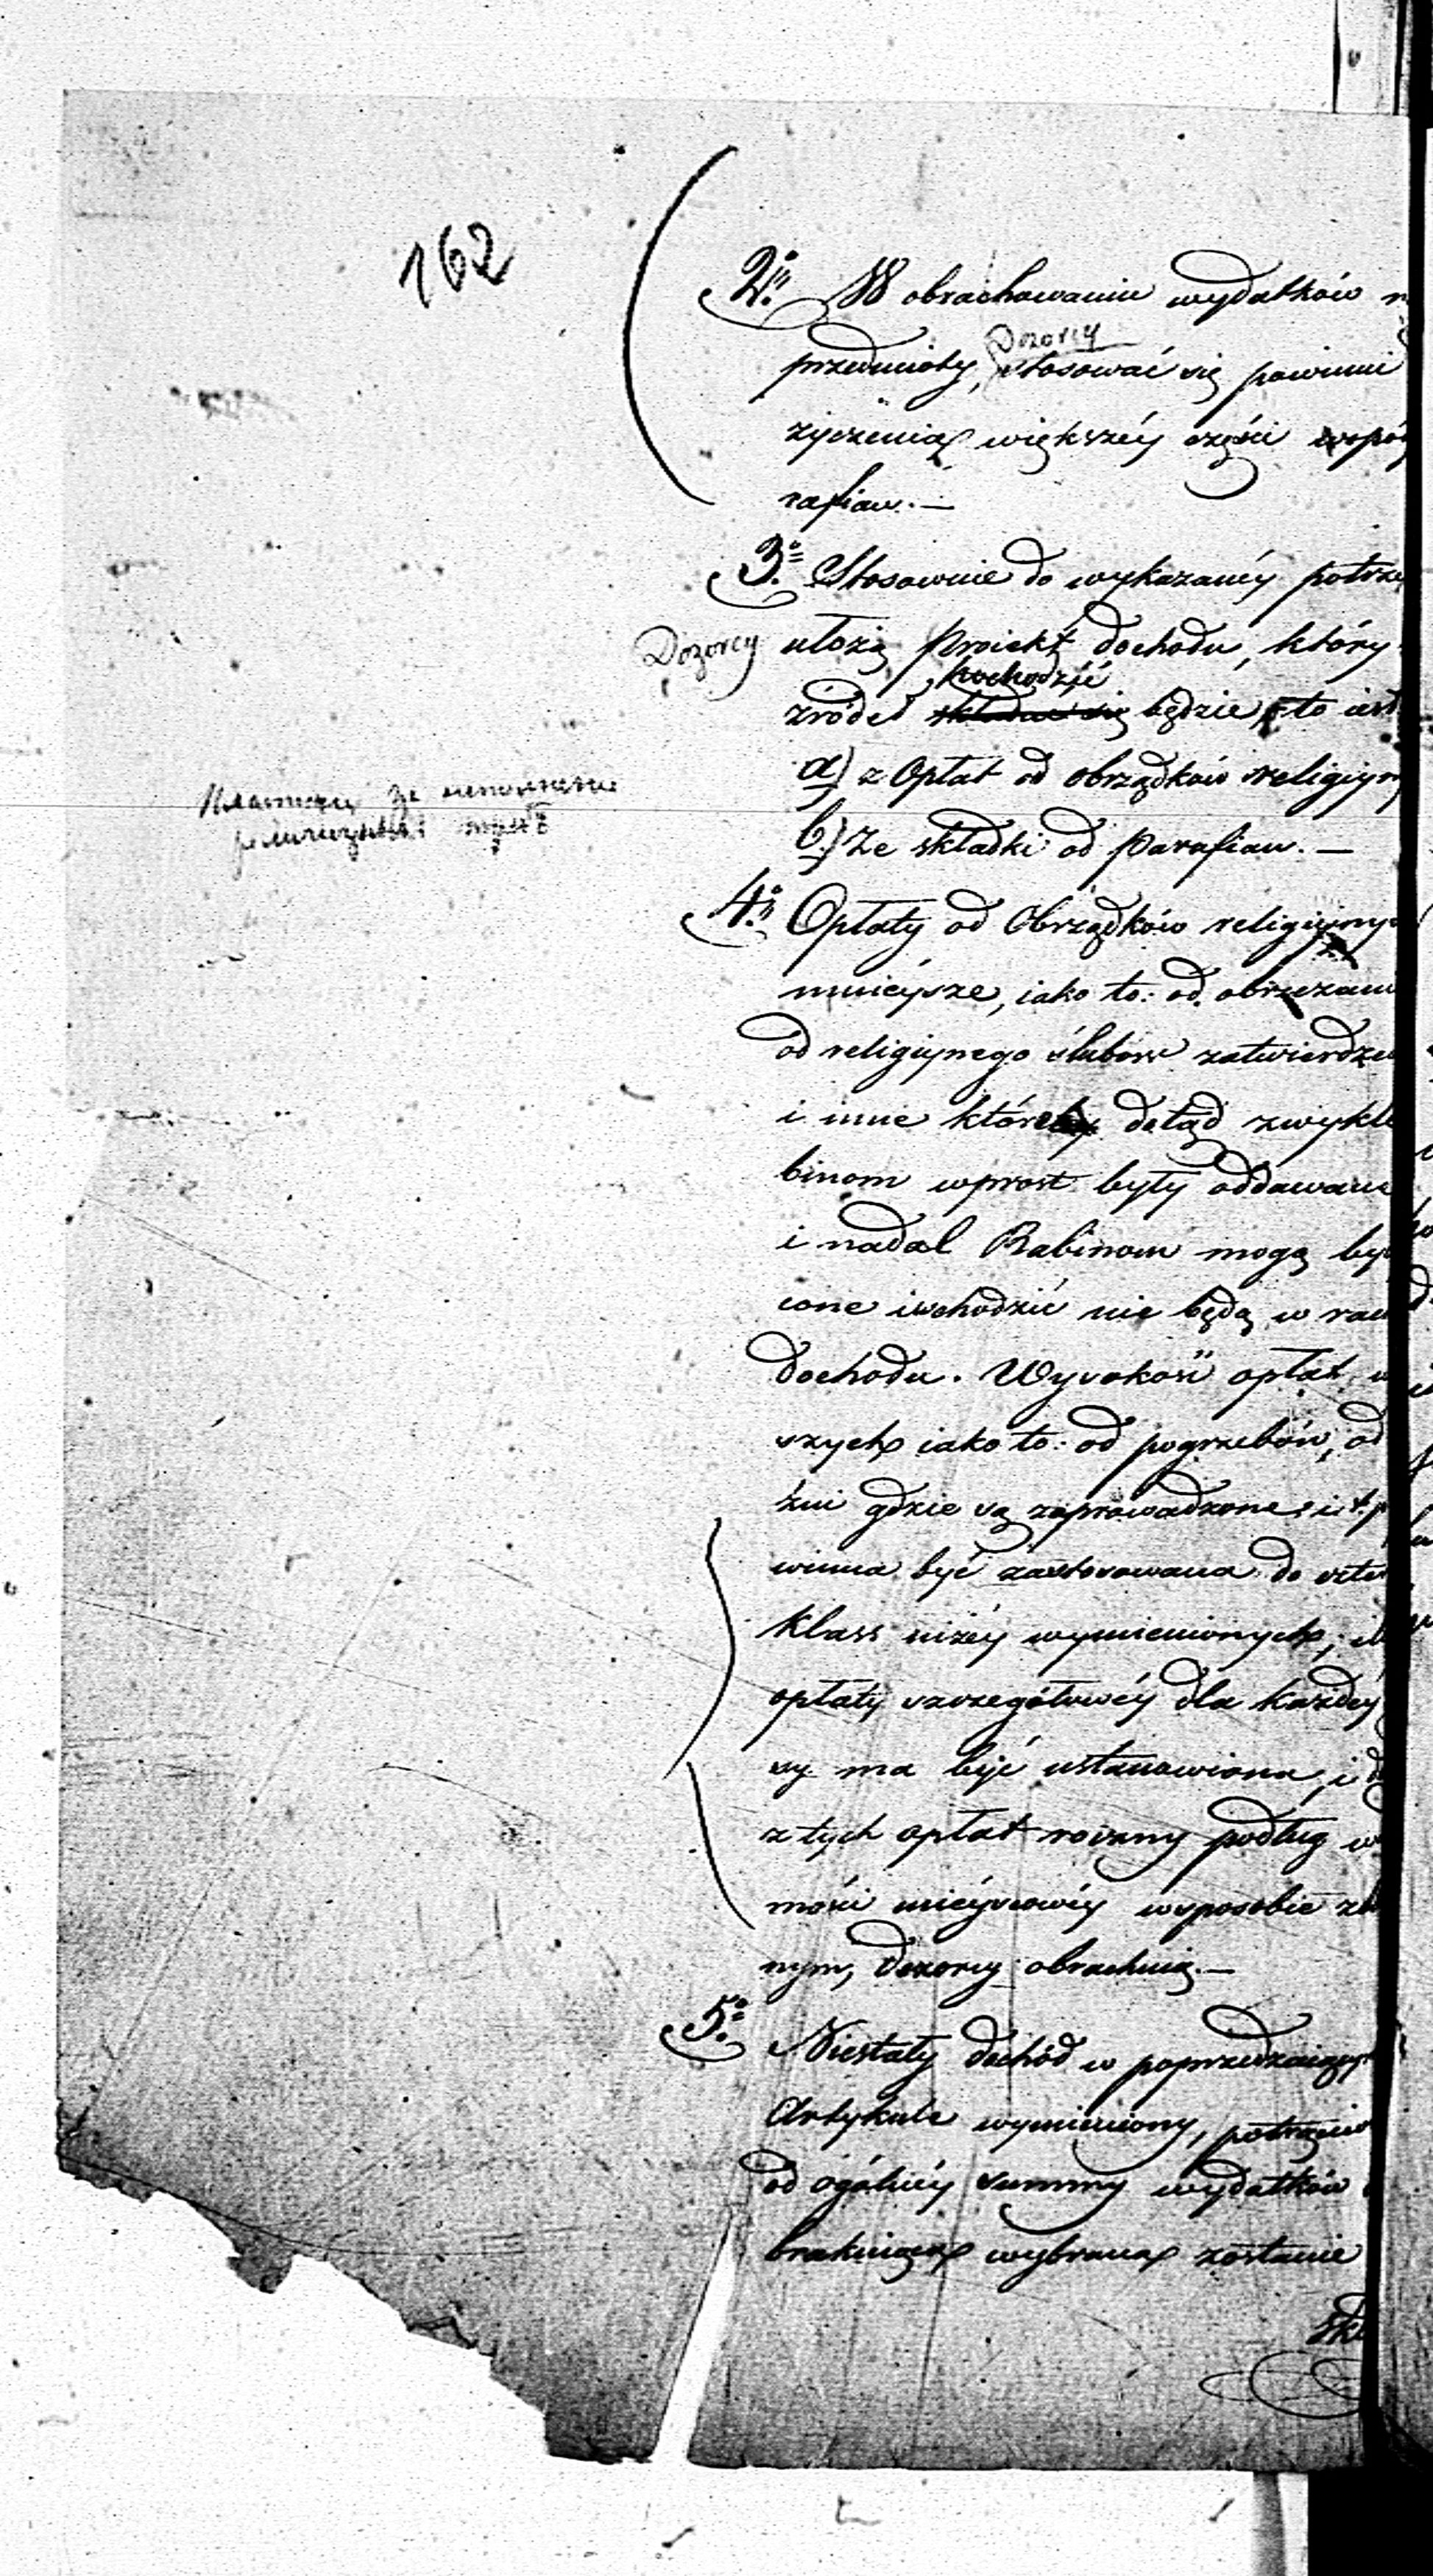 162
2º W obrachowaniu wydatków
Dozorcy
przedmioty, stosować się powinni
życzenia większéy części wspó
rafian. —
3º Stosownie do wykazanéy potrze
Dozorcy ułożą Proiekt dochodu, który
pochodzić
źródeł składać się będzie, to iest
a) z Opłat od obrządków religiyn
b) Ze składki od Parafian. —
4º Opłaty od Obrządków religiyny
mnieysze, iako to: od obrzezani
od religiynego ślubow zatwierdze
i inne które dotąd zwykle
binom wprost były oddawane
i nadal Rabinom mogą by
cone i wchodzić nie będą w rac
dochodu. Wysokość opłat w
szych iako to: od pogrzebów, od
źni gdzie są zaprowadzone i t. p
winna być zastosowana do
klass niżéy wymienionych; i
opłaty szczegółowéy dla każdéy
sy ma być ustanowiona, i d
z tych opłat roczny podług w
mości mieyscowéy w sposobie
nym, Dozorcy obrachuią. —
5º Niestały dochód w poprzedzaiący
Artykule wymieniony, potrąci
od ogólnéy summy wydatków
brakuiąca wybrana zostanie
Skł